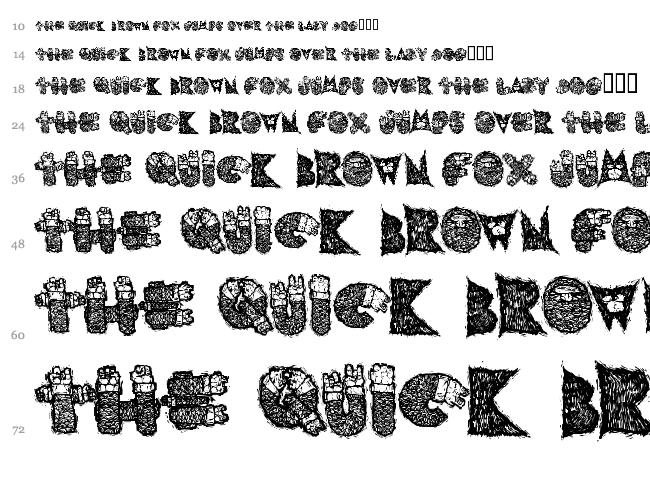 10 THE QUICK BROWN FOX JUMPS OVER THE LAZY DOG
14 THE QUICK BROWN FOX JUMPS OVER THE LAZY DOG
18 THE QUICK BROWN FOX JUMPS OVER THE LAZY DOG
24 THE QUICK BROWN FOX JUMPS OVER THE L
36 THE QUICK BROWN FOX JUMP
48 THE QUICK BROWN FO
60 THE QUICK BROWN
72 THE QUICK BR